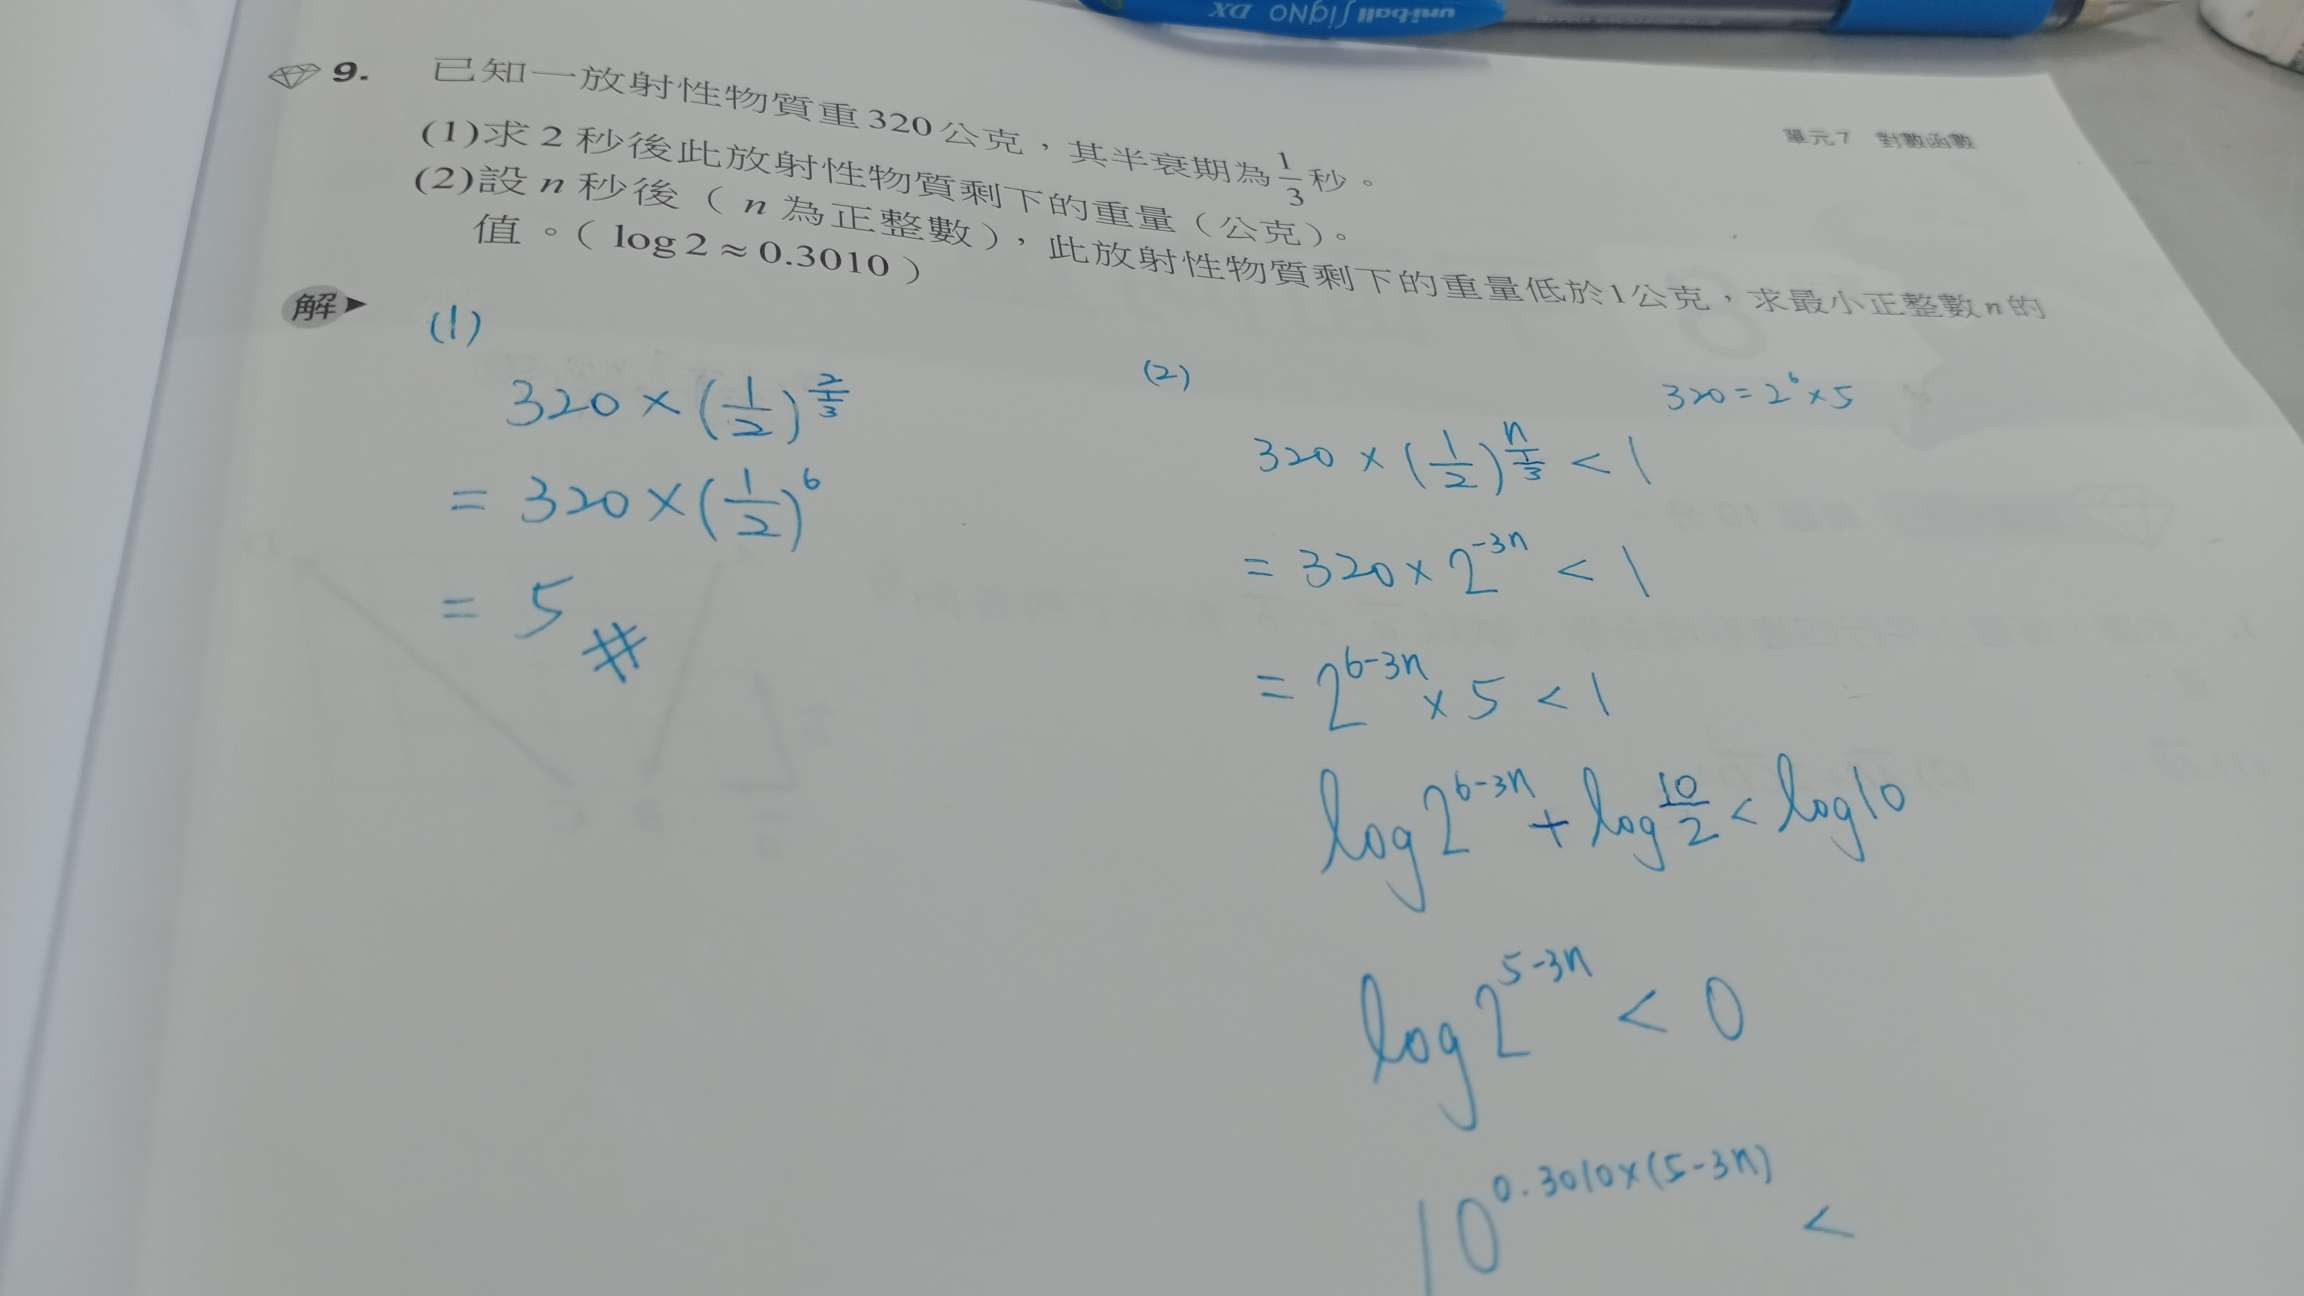 uni-ball SigNO DX
單元7 對數函數
9. 已知一放射性物質重320公克，其半衰期為1/3秒。
(1)求2秒後此放射性物質剩下的重量（公克）。
(2)設n秒後（n為正整數），此放射性物質剩下的重量低於1公克，求最小正整數n的
值。（log2≈0.3010）
解
(1)
320×(1/2)^(2/(1/3))
= 320×(1/2)^6
= 5 #
(2)
320=2^6×5
320×(1/2)^(n/(1/3)) < 1
= 320×2^(-3n) < 1
= 2^(6-3n)×5 < 1
log2^(6-3n) + log 10/2 < log10
log2^(5-3n) < 0
10^(0.3010×(5-3n)) <